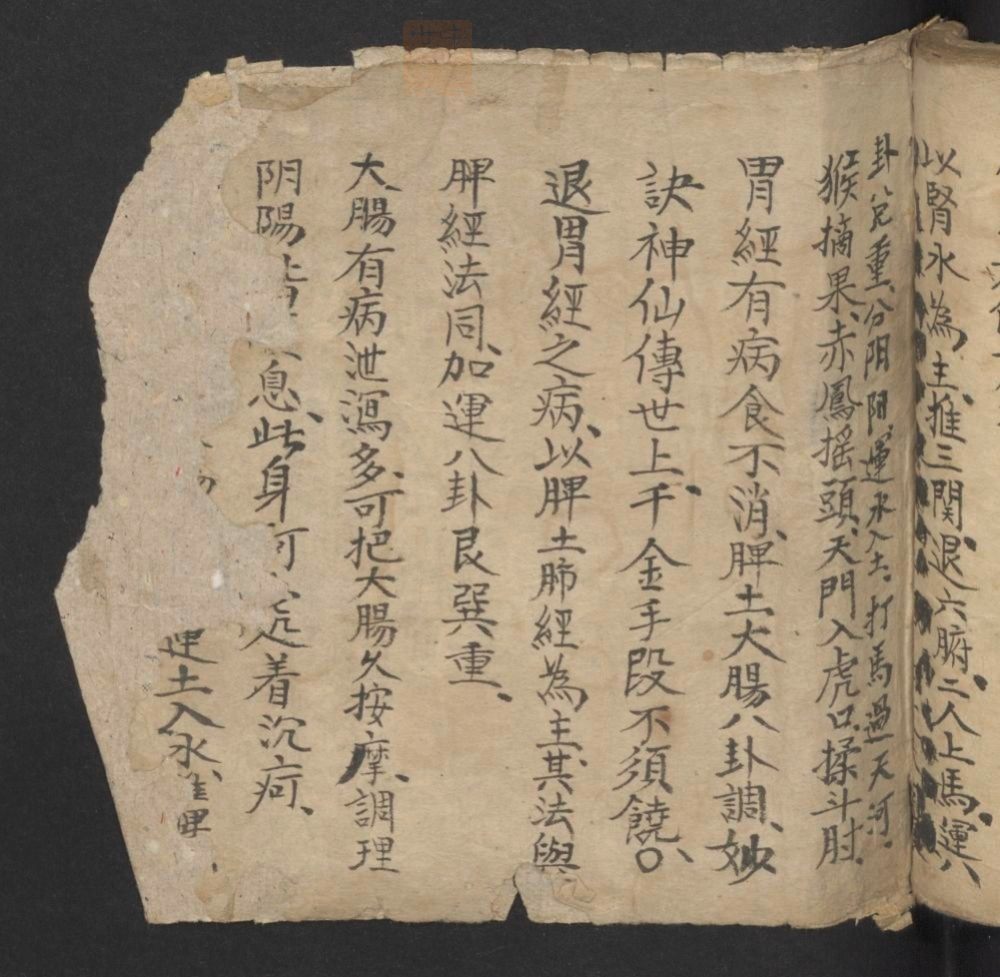 以腎水為主、推三関、退六腑、二人上馬、運八
卦兌重、分阴阳、運水入土、打馬過天河、
猴摘果、赤鳳摇頭、天門入虎口、揉斗肘、
胃經有病食不消、脾土大腸八卦調、妙
訣神仙傳世上、千金手段不須饒、〇
退胃經之病、以脾土肺經為主、其法與
脾經法同、加運八卦艮巽重、
大腸有病泄瀉多、可把大腸久按摩、調理
阴陽 息、此身 着沉疴、
運土入水、